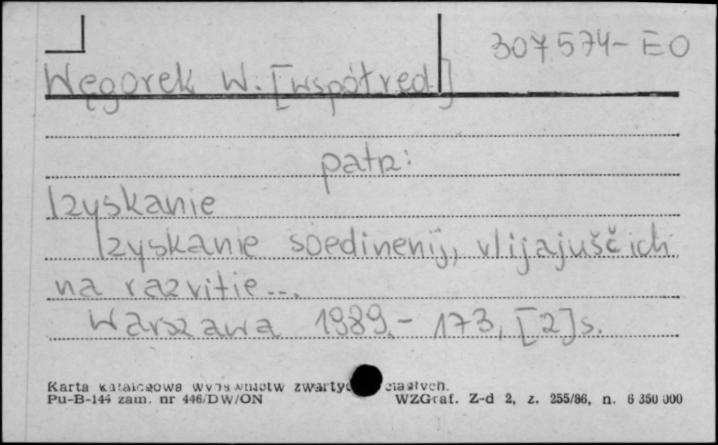 307574-EO
Węgorek W. [współred.]
patrz:
Izyskanie
Izyskanie soedinenij, vlijajuščich
na razvitie...
Warszawa 1989.- 173, [2] s.
Karta katalogowa wydawnictw zwartych ciągłych.
Pu-B-144 zam. nr 446/DW/ON WZGraf. Z-d 2, z. 255/86, n. 6 350 000